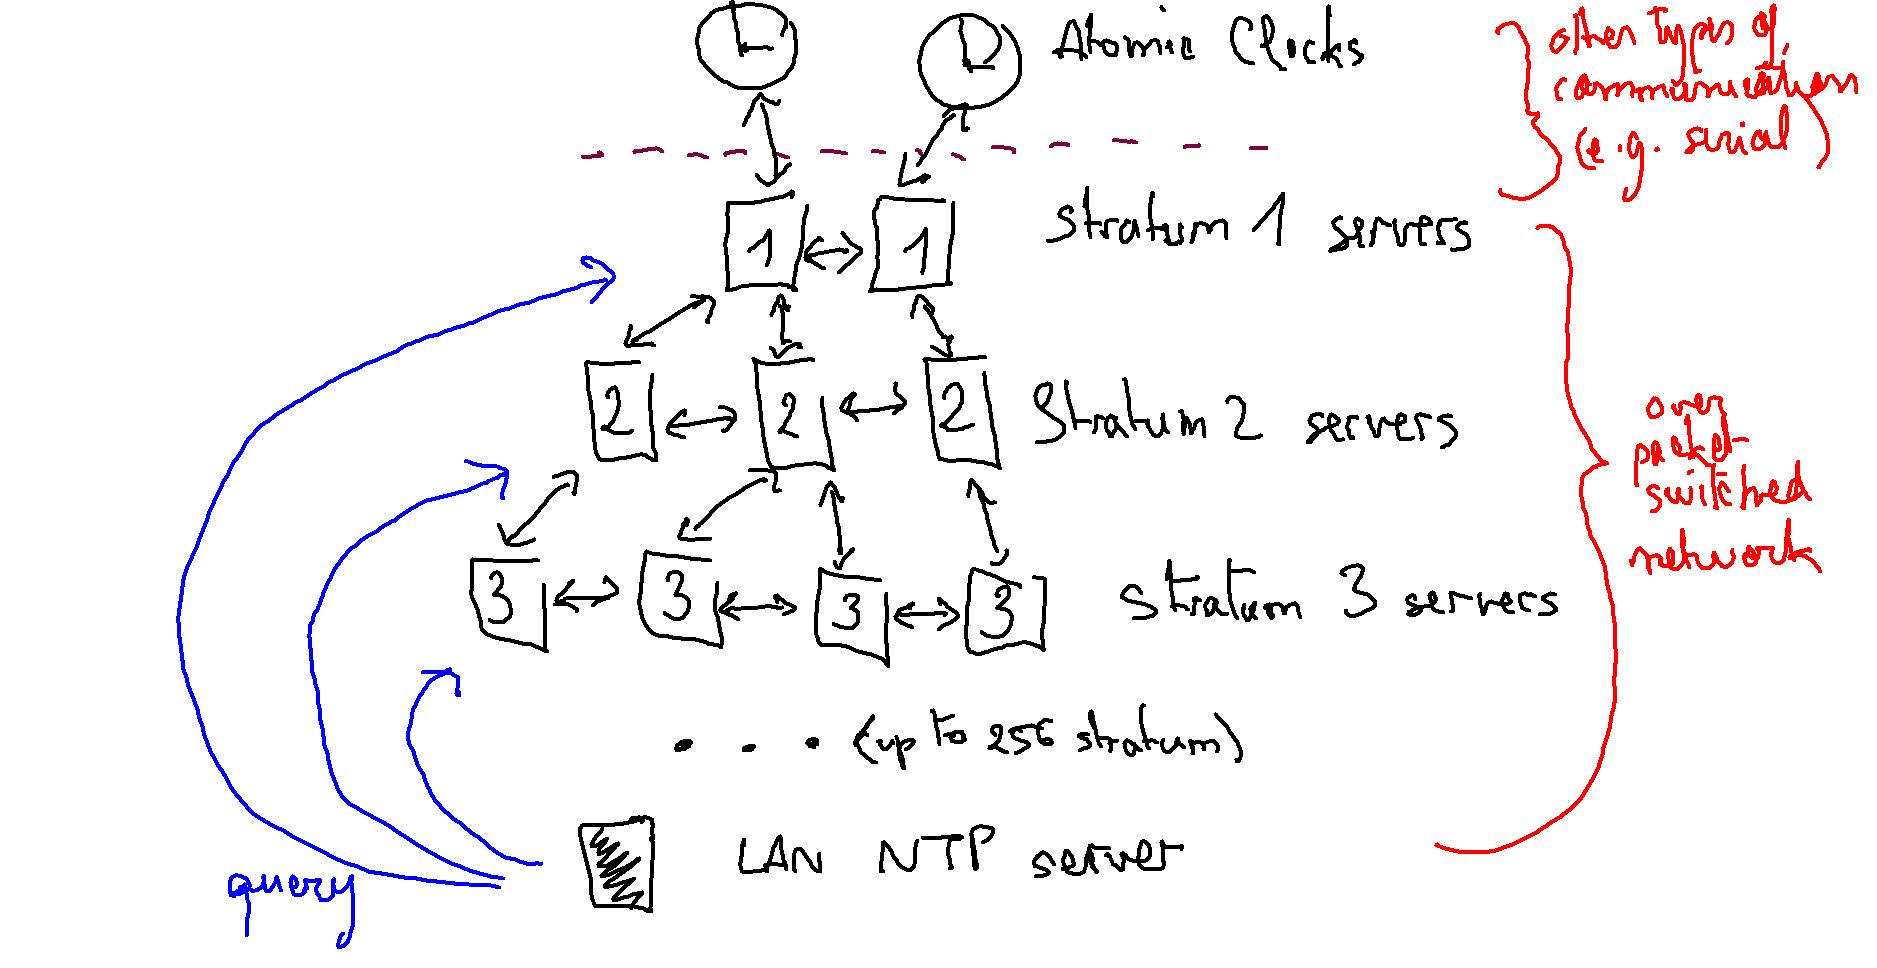 Atomic Clocks
other types of
communication
(e.g. serial)
1 1
stratum 1 servers
2 2 2
Stratum 2 servers
over
packet-
switched
network
3 3 3 3
stratum 3 servers
. . . (up to 256 stratum)
LAN NTP server
query